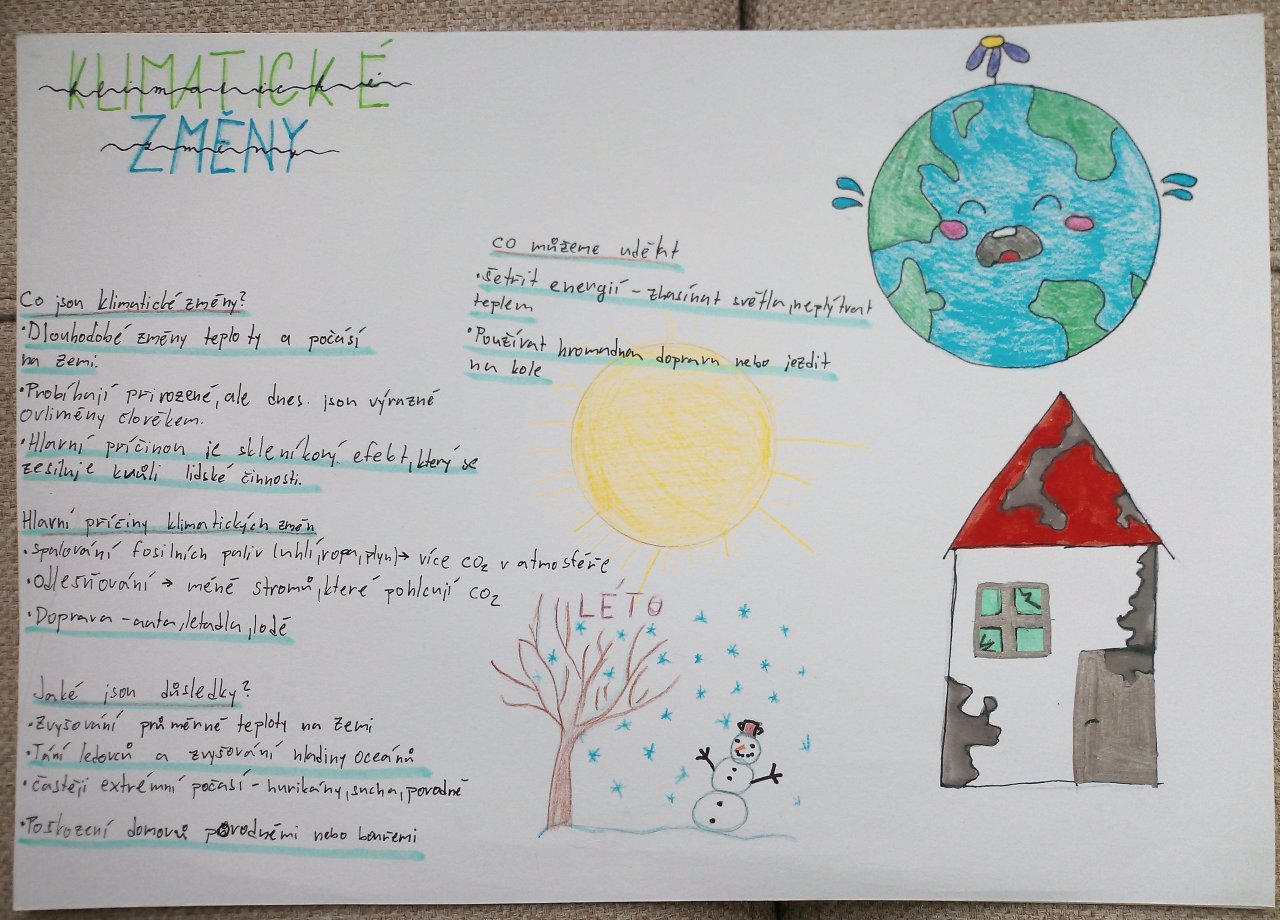 KLIMATICKÉ
klimatické
ZMĚNY
změny
Co jsou klimatické změny?
•Dlouhodobé změny teploty a počasí
na zemi.
•Probíhají přirozeně, ale dnes. jsou výrazně
ovliměny člověkem.
•Hlavní príčinou je skleníkový efekt, který se
zesiluje kvůli lidské činnosti.
Hlavní príčiny klimatických změn
•spalování fosilních paliv (uhlí, ropa, plyn)→ více CO₂ v atmosféře
•Odlesňování → méně stromů, které pohlcují CO₂
•Doprava - auta, letadla, lodě
Jaké jsou důsledky?
•Zvyšování průměrné teploty na Zemi
•Tání ledovců a zvyšování hladiny oceánů
•častěji extrémní počasí - hurikány, sucha, povodně
•Poškození domovů povodněmi nebo bouřemi
CO můžeme udělat
•šetřit energií - zhasínat světla, neplýtvat
teplem
•Používat hromadnou dopravu nebo jezdit
na kole
LÉTO